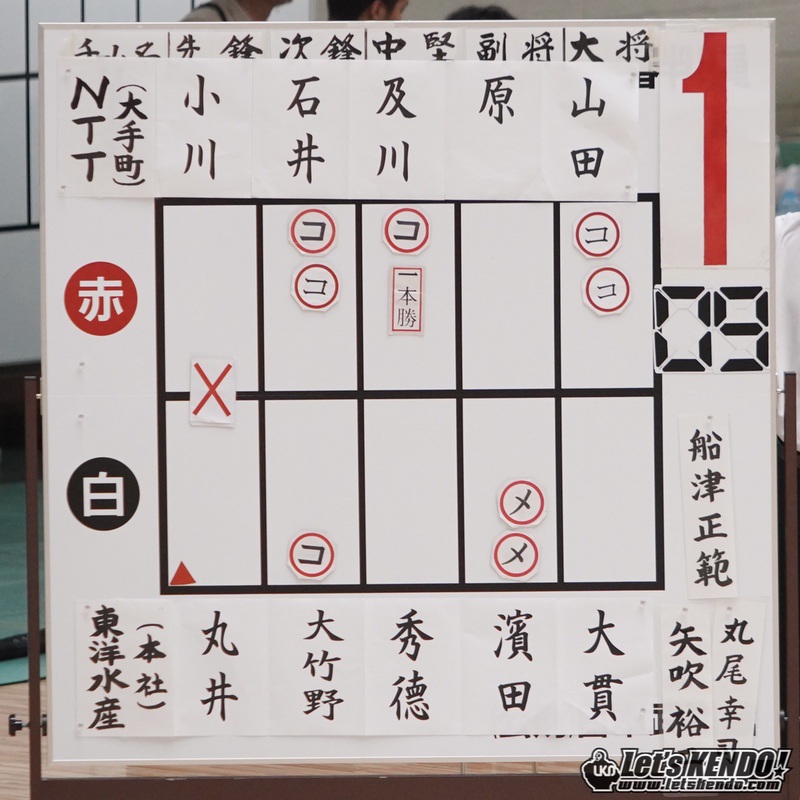 チーム名 先鋒 次鋒 中堅 副将 大将
1
NTT
(大手町)
小川
石井
及川
原
山田
コ コ コ
コ 一本勝 コ
09
赤
白
メ
コ メ
船津正範
東洋水産
(本社)
丸井
大竹野
秀徳
濱田
大貫
矢吹裕
丸尾幸
UKD
Let'sKENDO!
www.letskendo.com